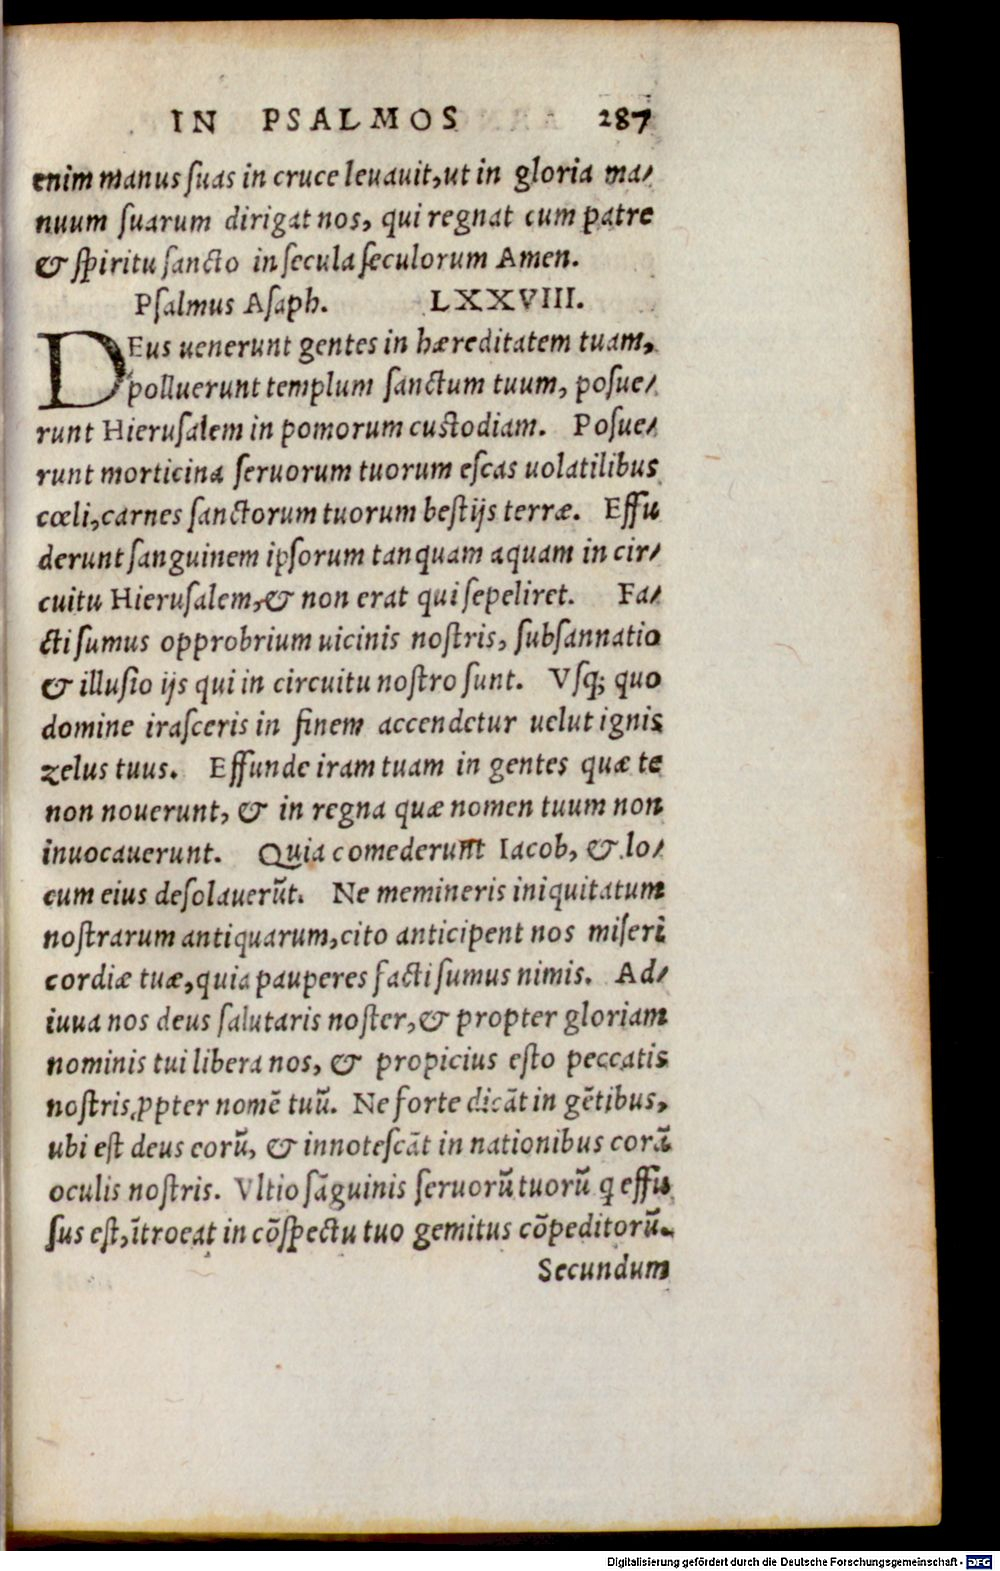 IN PSALMOS 287
enim manus ſuas in cruce leuauit, ut in gloria ma⸗
nuum ſuarum dirigat nos, qui regnat cum patre
& ſpiritu ſancto in ſecula ſeculorum Amen.
Pſalmus Aſaph. LXXVIII.
DEus uenerunt gentes in hæreditatem tuam,
polluerunt templum ſanctum tuum, poſue⸗
runt Hieruſalem in pomorum cuſtodiam. Poſue⸗
runt morticina ſeruorum tuorum eſcas uolatilibus
cœli, carnes ſanctorum tuorum beſtijs terræ. Effu
derunt ſanguinem ipſorum tanquam aquam in cir⸗
cuitu Hieruſalem, & non erat qui ſepeliret. Fa⸗
cti ſumus opprobrium uicinis noſtris, ſubſannatio
& illuſio ijs qui in circuitu noſtro ſunt. Vſq; quo
domine iraſceris in finem accendetur uelut ignis
zelus tuus. Effunde iram tuam in gentes quæ te
non nouerunt, & in regna quæ nomen tuum non
inuocauerunt. Quia comederunt Iacob, & lo⸗
cum eius deſolauerũt. Ne memineris iniquitatum
noſtrarum antiquarum, cito anticipent nos miſeri
cordiæ tuæ, quia pauperes facti ſumus nimis. Ad⸗
iuua nos deus ſalutaris noſter, & propter gloriam
nominis tui libera nos, & propicius eſto peccatis
noſtris ꝓpter nomẽ tuũ. Ne forte dicãt in gẽtibus,
ubi eſt deus eorũ, & innoteſcãt in nationibus corã
oculis noſtris. Vltio ſãguinis ſeruorũ tuorũ q effu
ſus eſt, ĩtroeat in cõſpectu tuo gemitus cõpeditorũ.
Secundum
Digitalisierung gefördert durch die Deutsche Forschungsgemeinschaft - DFG